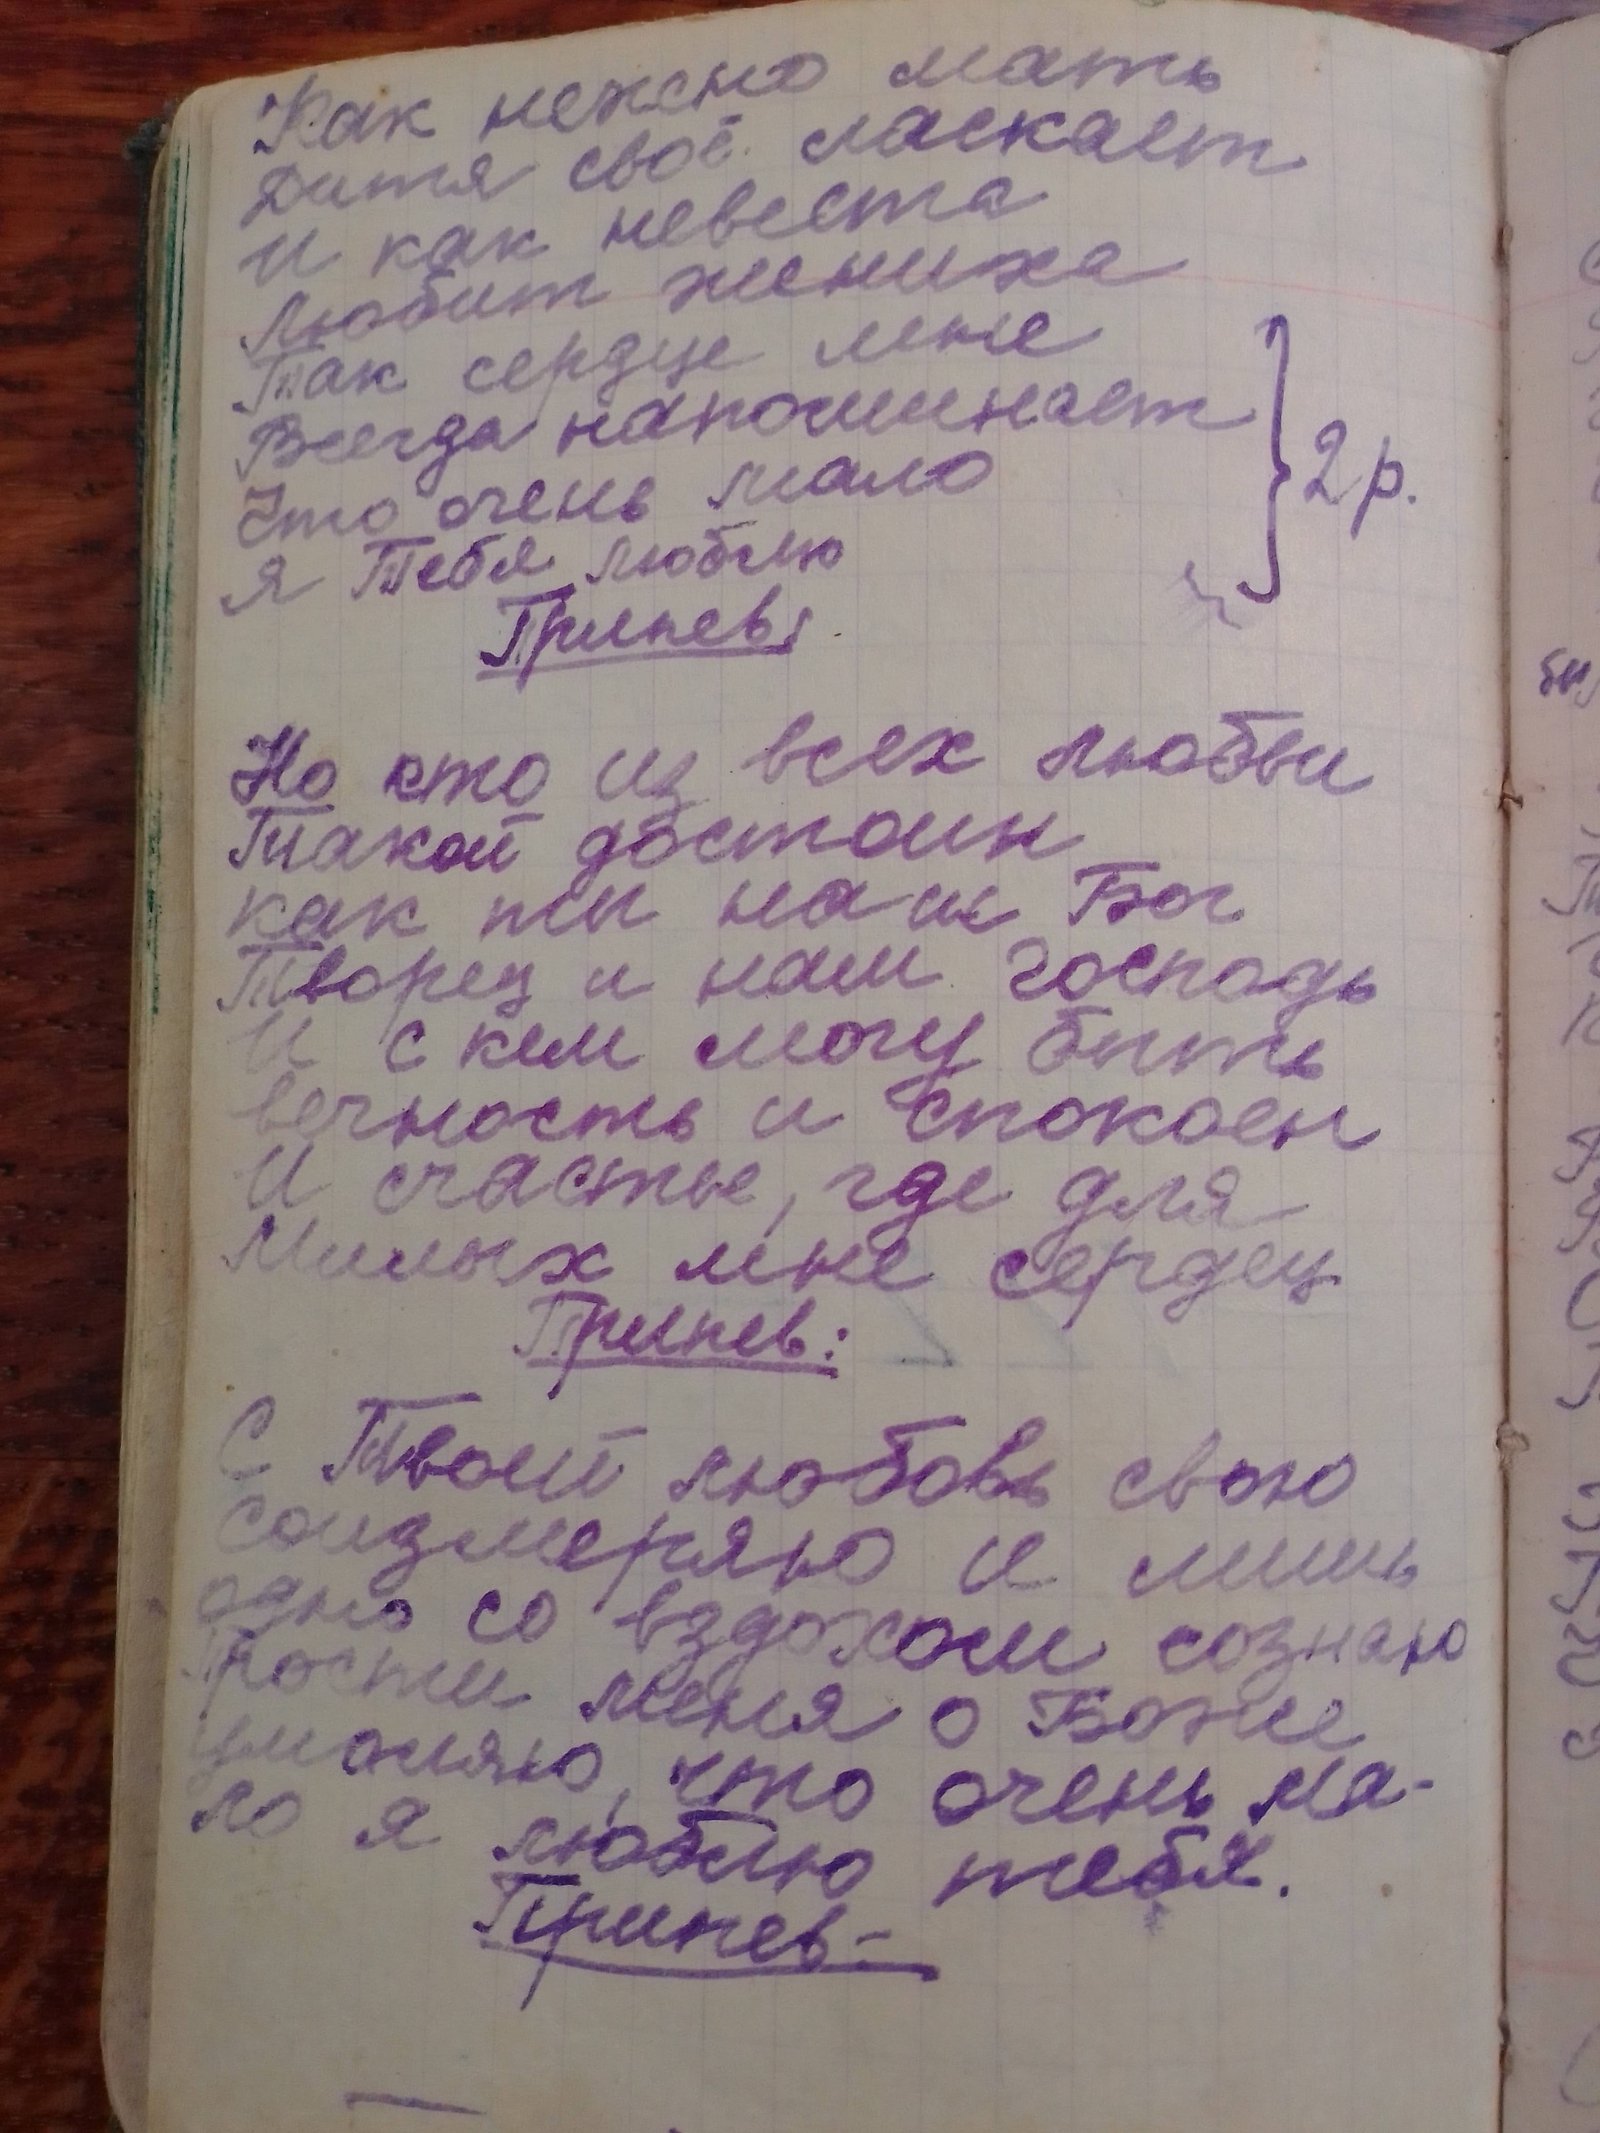 Как нежно мать
Дитя своё ласкает
И как невеста
Любит жениха
Так сердце мне
Всегда напоминает
Что очень мало
Я Тебя люблю
} 2 р.
Припев:
Но кто из всех любви
Такой достоин
как ты наш Бог
Творец и нам господь
И с кем могу быть
вечность и спокоен
И счастье, где для
Милых мне сердец
Припев:
С Твоей любовь свою
соизмеряю и лишь
одно со вздохом сознаю
Прости меня о Боже
умоляю, что очень ма-
ло я люблю тебя.
Припев-